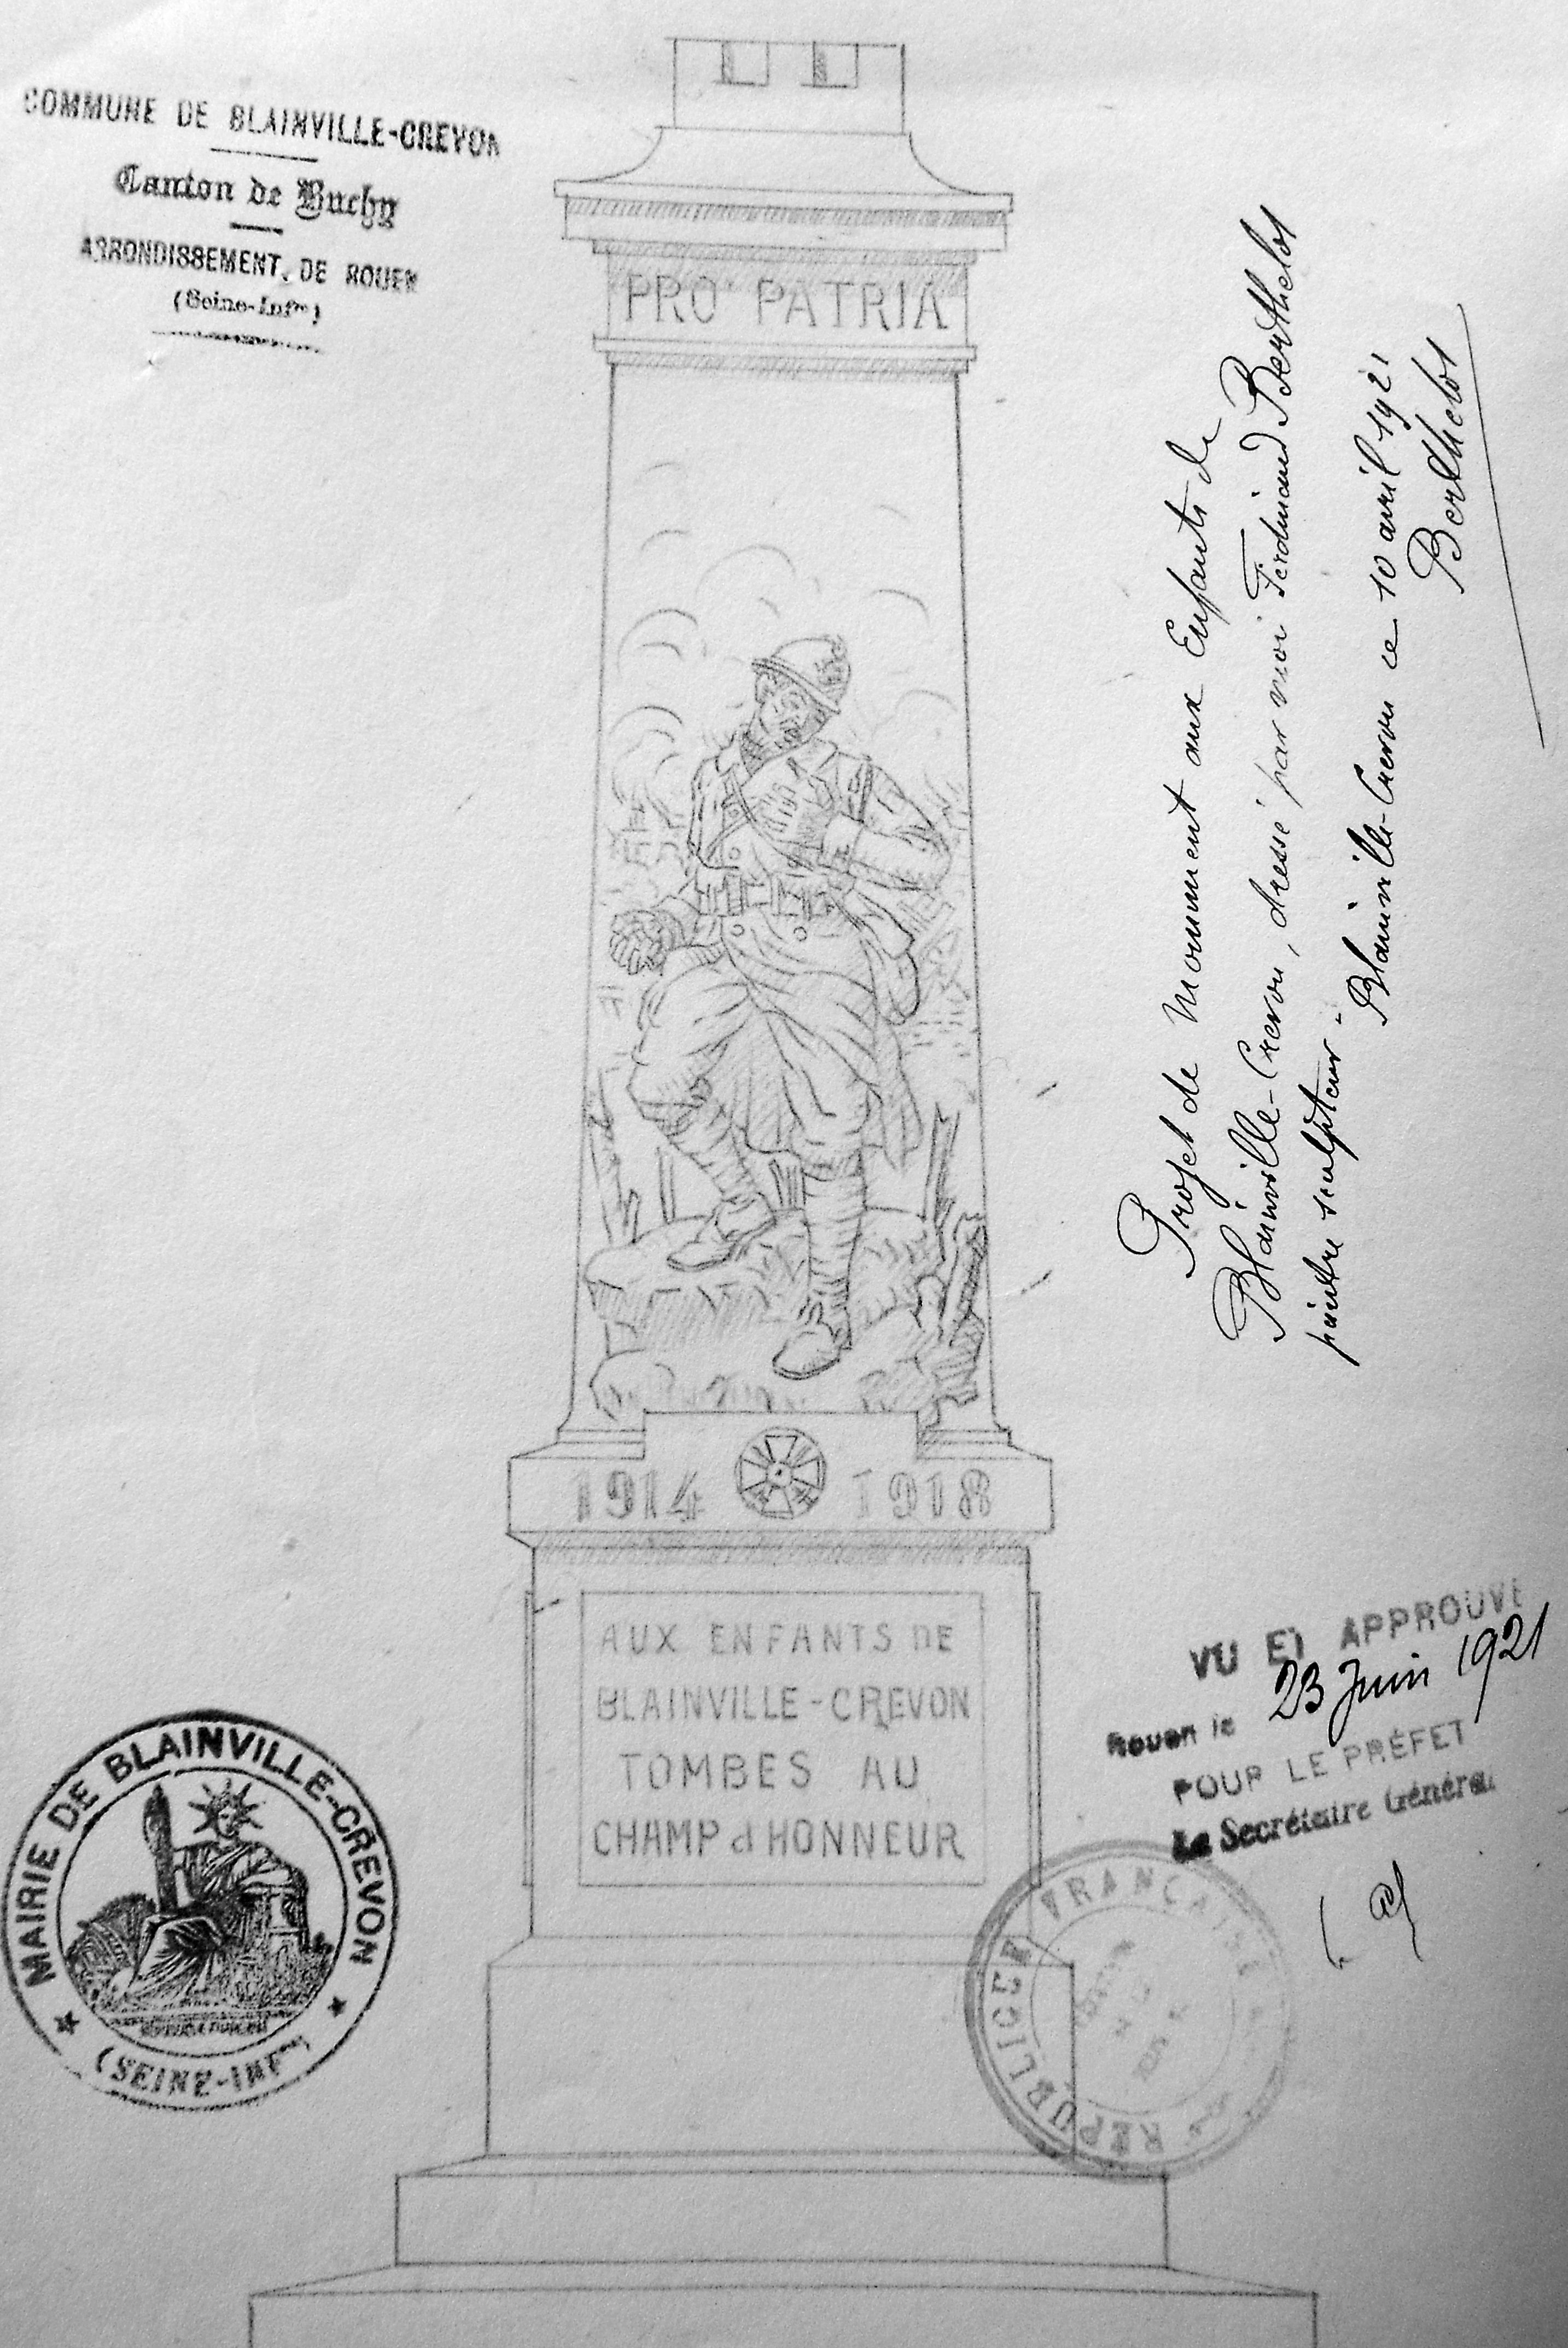 COMMUNE DE BLAINVILLE-CREVON
Canton de Buchy
ARRONDISSEMENT. DE ROUEN
(Seine-Infre)
PRO PATRIA
Projet de Monument aux Enfants de
Blainville-Crevon, dressé par moi Ferdinand Berthelot
peintre sculpteur -
Blainville-Crevon ce 10 avril 1921
Berthelot
1914 1918
AUX ENFANTS DE
BLAINVILLE-CREVON
TOMBES AU
CHAMP d HONNEUR
VU ET APPROUVE
Rouen le 23 Juin 1921
POUR LE PRÉFET
Le Secrétaire Général
MAIRIE DE BLAINVILLE-CREVON
(SEINE-INFre)
REPUBLIQUE FRANÇAISE